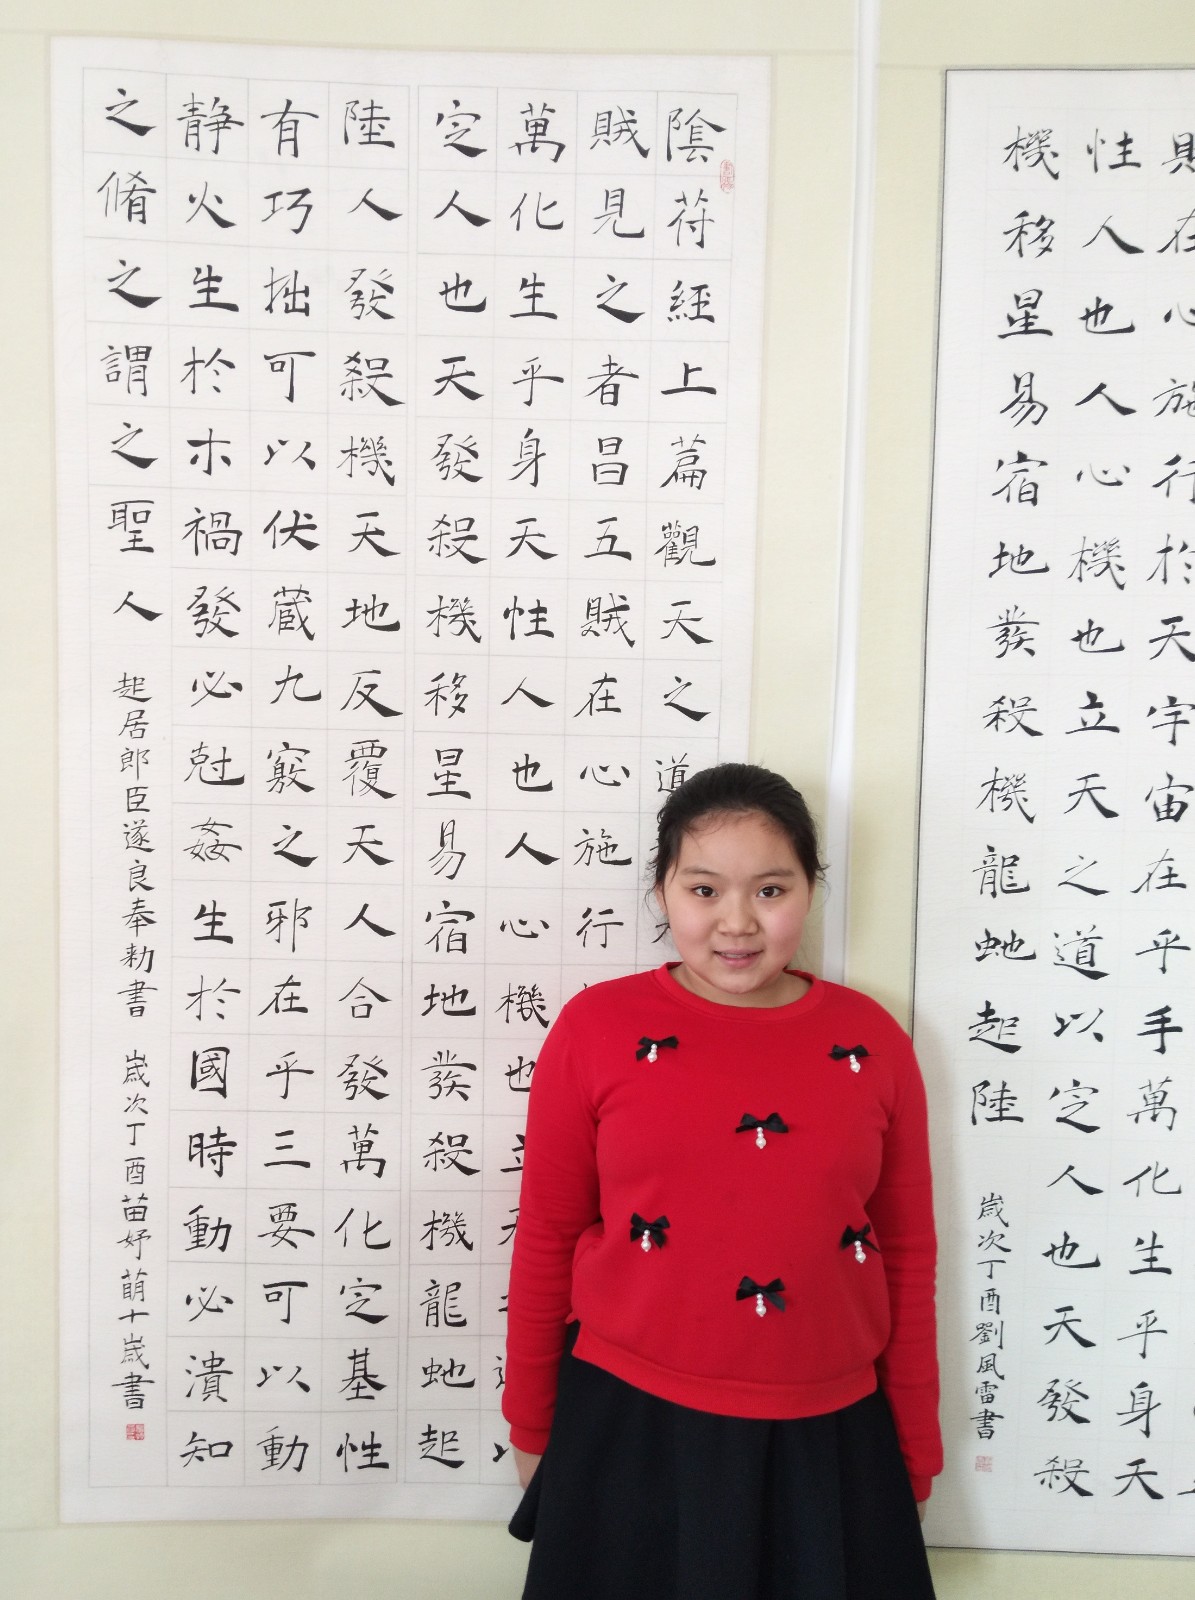 陰苻經上篇觀天之道
賊見之者昌五賊在心施行
萬化生乎身天性人也人心機也立天
㝎人也天發殺機移星易宿地發殺機龍虵起
陸人發殺機天地反覆天人合發萬化㝎基性
有巧拙可以伏藏九竅之邪在乎三要可以動
静火生於木禍發必尅姦生於國時動必潰知
之脩之謂之聖人 起居郎臣遂良奉勑書 歲次丁酉苗妤萌十歲書
賊在心施行於天宇宙在乎手萬化生乎身天
性人也人心機也立天之道以㝎人也天發殺
機移星易宿地發殺機龍虵起陸 歲次丁酉劉風雷書